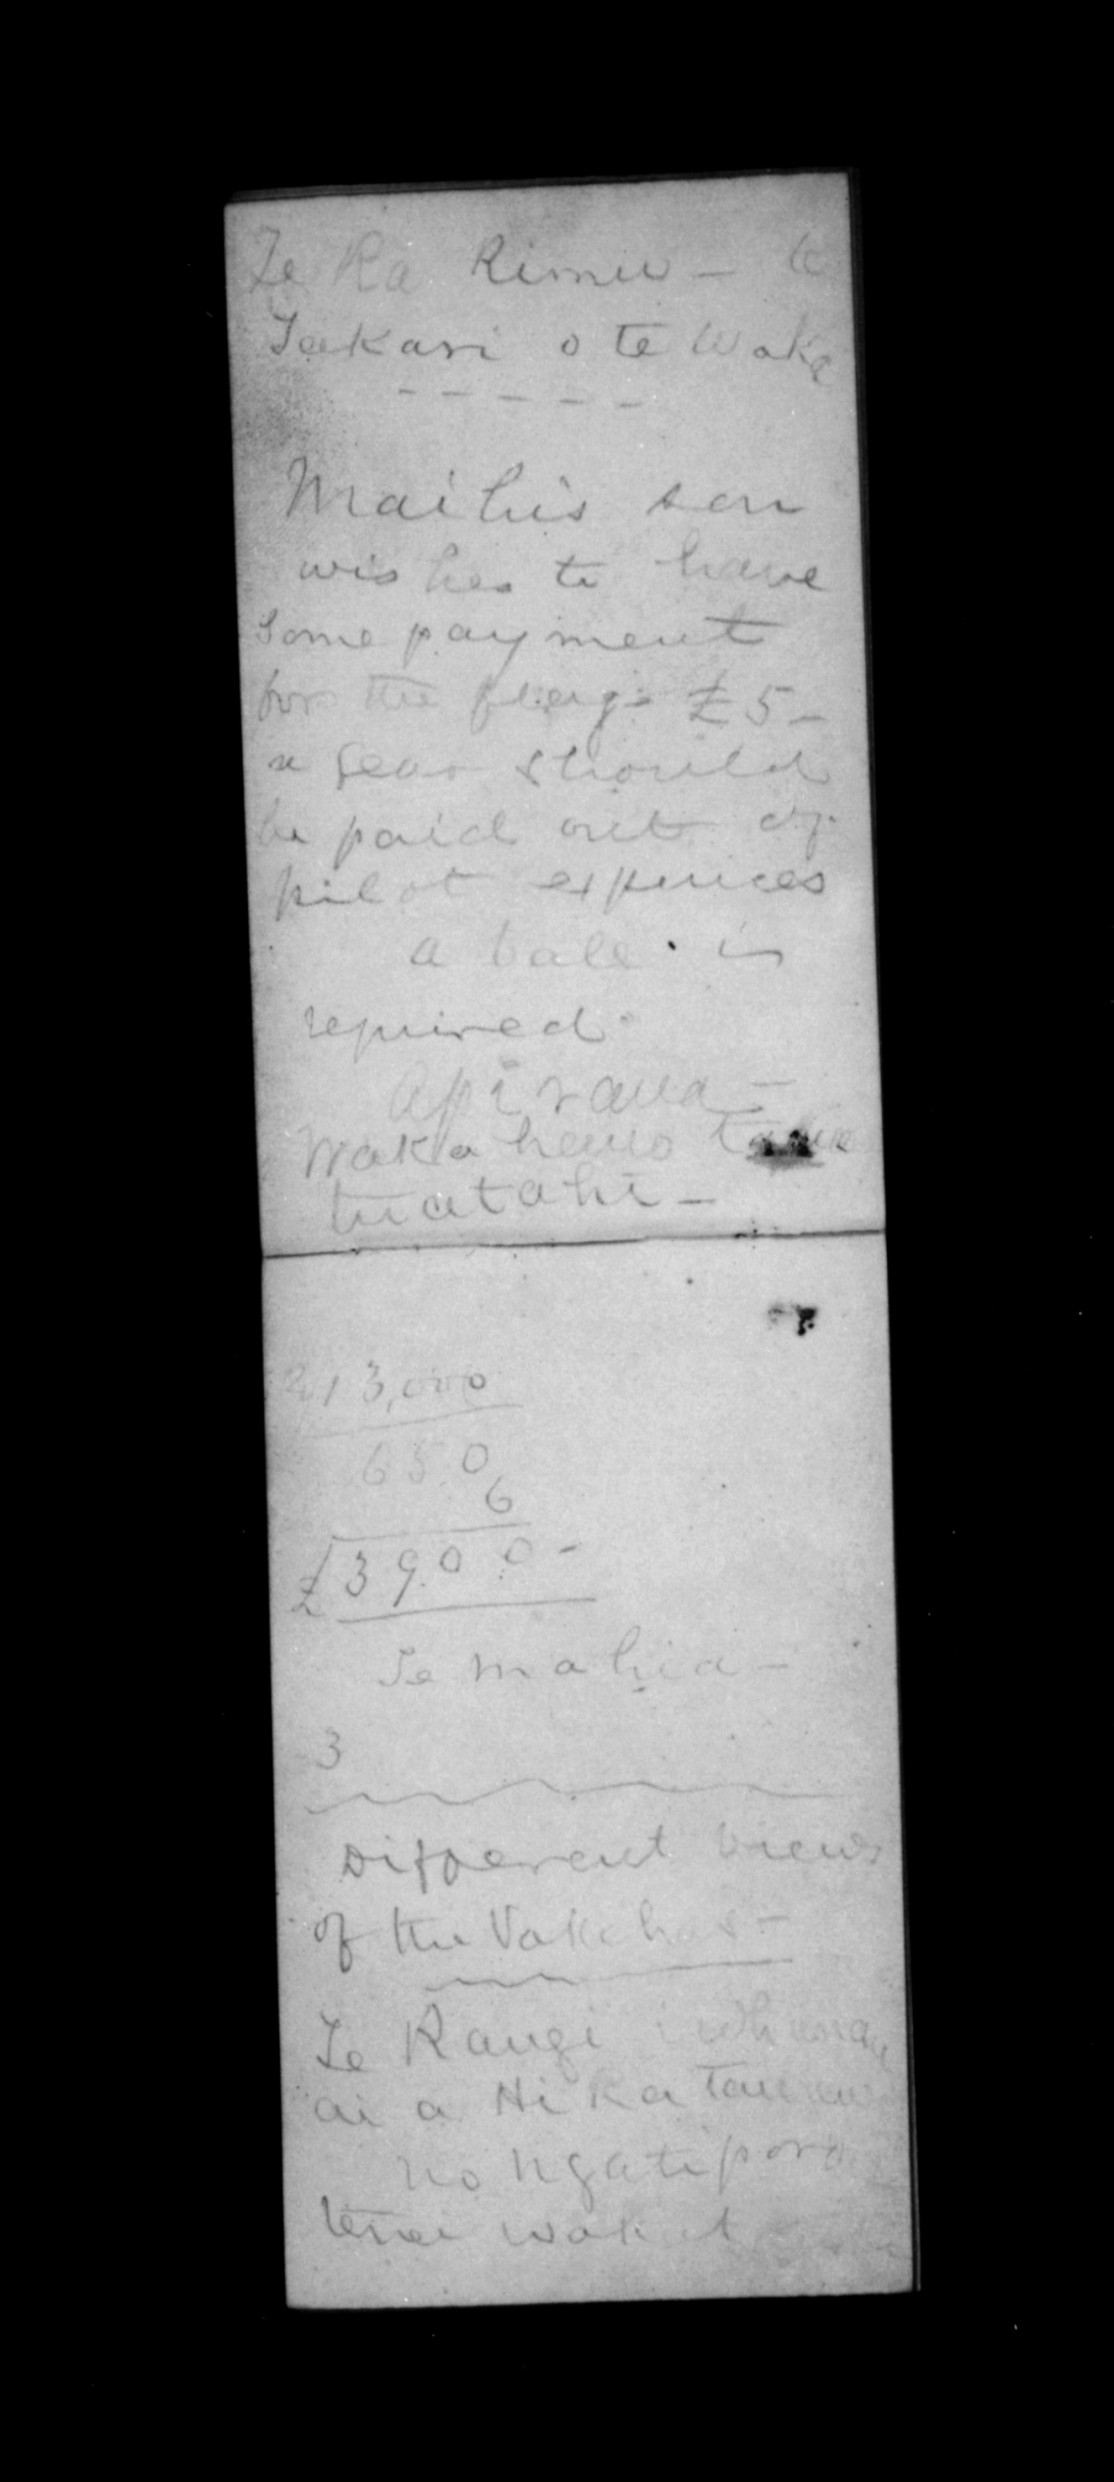 Te Ra Rimu – te
Takari o te Waka
– – – – –
Maihi's son
wishes to have
some payment
for the flag: £5 –
a year should
be paid out of
pilot expences
a ball is
required.
Apirana –
Waka hemo
tuatahi –
13,000
650
6
£3900 –
Te mahia –
3
Different views
of the Pakehas –
Te Rangi i whanau
ai a Hikatau
no Ngatiporo
tenei